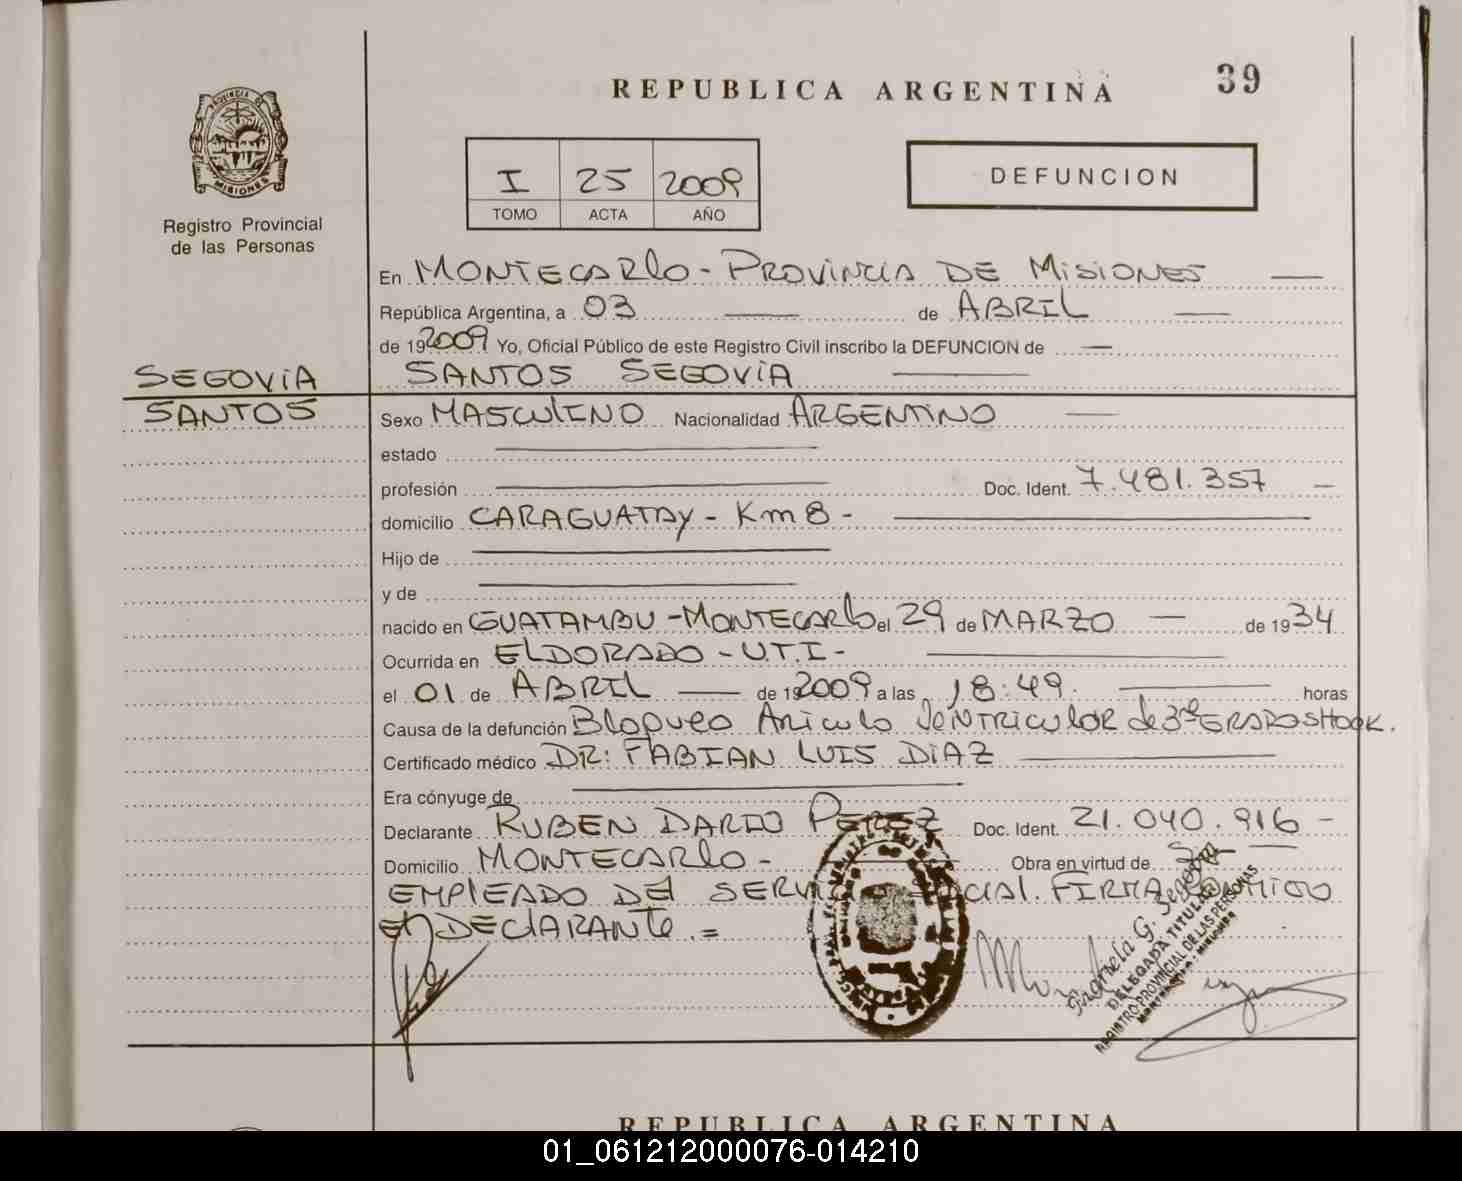 39
REPUBLICA ARGENTINA
PROVINCIA DE
MISIONES
Registro Provincial
de las Personas
I 25 2009
TOMO ACTA AÑO
DEFUNCION
En MONTECARlo - PROVINCIA DE MISIONES
República Argentina, a 03 de ABRIL
de 19 2009 Yo, Oficial Público de este Registro Civil inscribo la DEFUNCION de
SEGOVIA
SANTOS
SANTOS SEGOVIA
Sexo MASCULINO Nacionalidad ARGENTINO
estado
profesión Doc. Ident. 7.481.357
domicilio CARAGUATAY - Km 8 -
Hijo de
y de
nacido en GUATAMBU - MONTECARlo el 29 de MARZO de 1934
Ocurrida en ELDORADO - U.T.I -
el 01 de ABRIL de 19 2009 a las 18:49. horas
Causa de la defunción Bloqueo Ariculo VeNTRICULOR de 3er GRADO SHOOK.
Certificado médico DR: FABIAN LUIS DIAZ
Era cónyuge de
Declarante RUBEN DARIO PEREZ Doc. Ident. 21.040.916 -
Domicilio MONTECARlo - Obra en virtud de
EMPlEADO DEl SERVICIO SOCIAL. FIRMA CONMIGO
El DEClARANTE. =
Graciela G. Segovia
DELEGADA TITULAR
REGISTRO PROVINCIAL DE LAS PERSONAS
REPUBLICA ARGENTINA
01_061212000076-014210